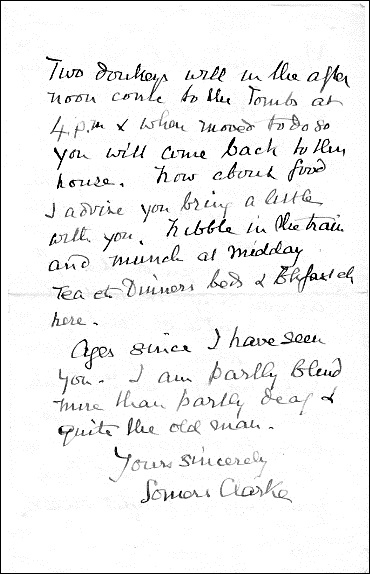 Two donkeys will in the after
noon come to the Tombs at
4 p.m & when moved to do so
you will come back to this
house. Now about food
I advise you bring a little
with you. Nibble in the train
and munch at midday
Tea etc Dinner beds & Bkfast etc
here.
Ages since I have seen
you. I am partly blind
more than partly deaf &
quite the old man.
Yours sincerely
Somers Clarke